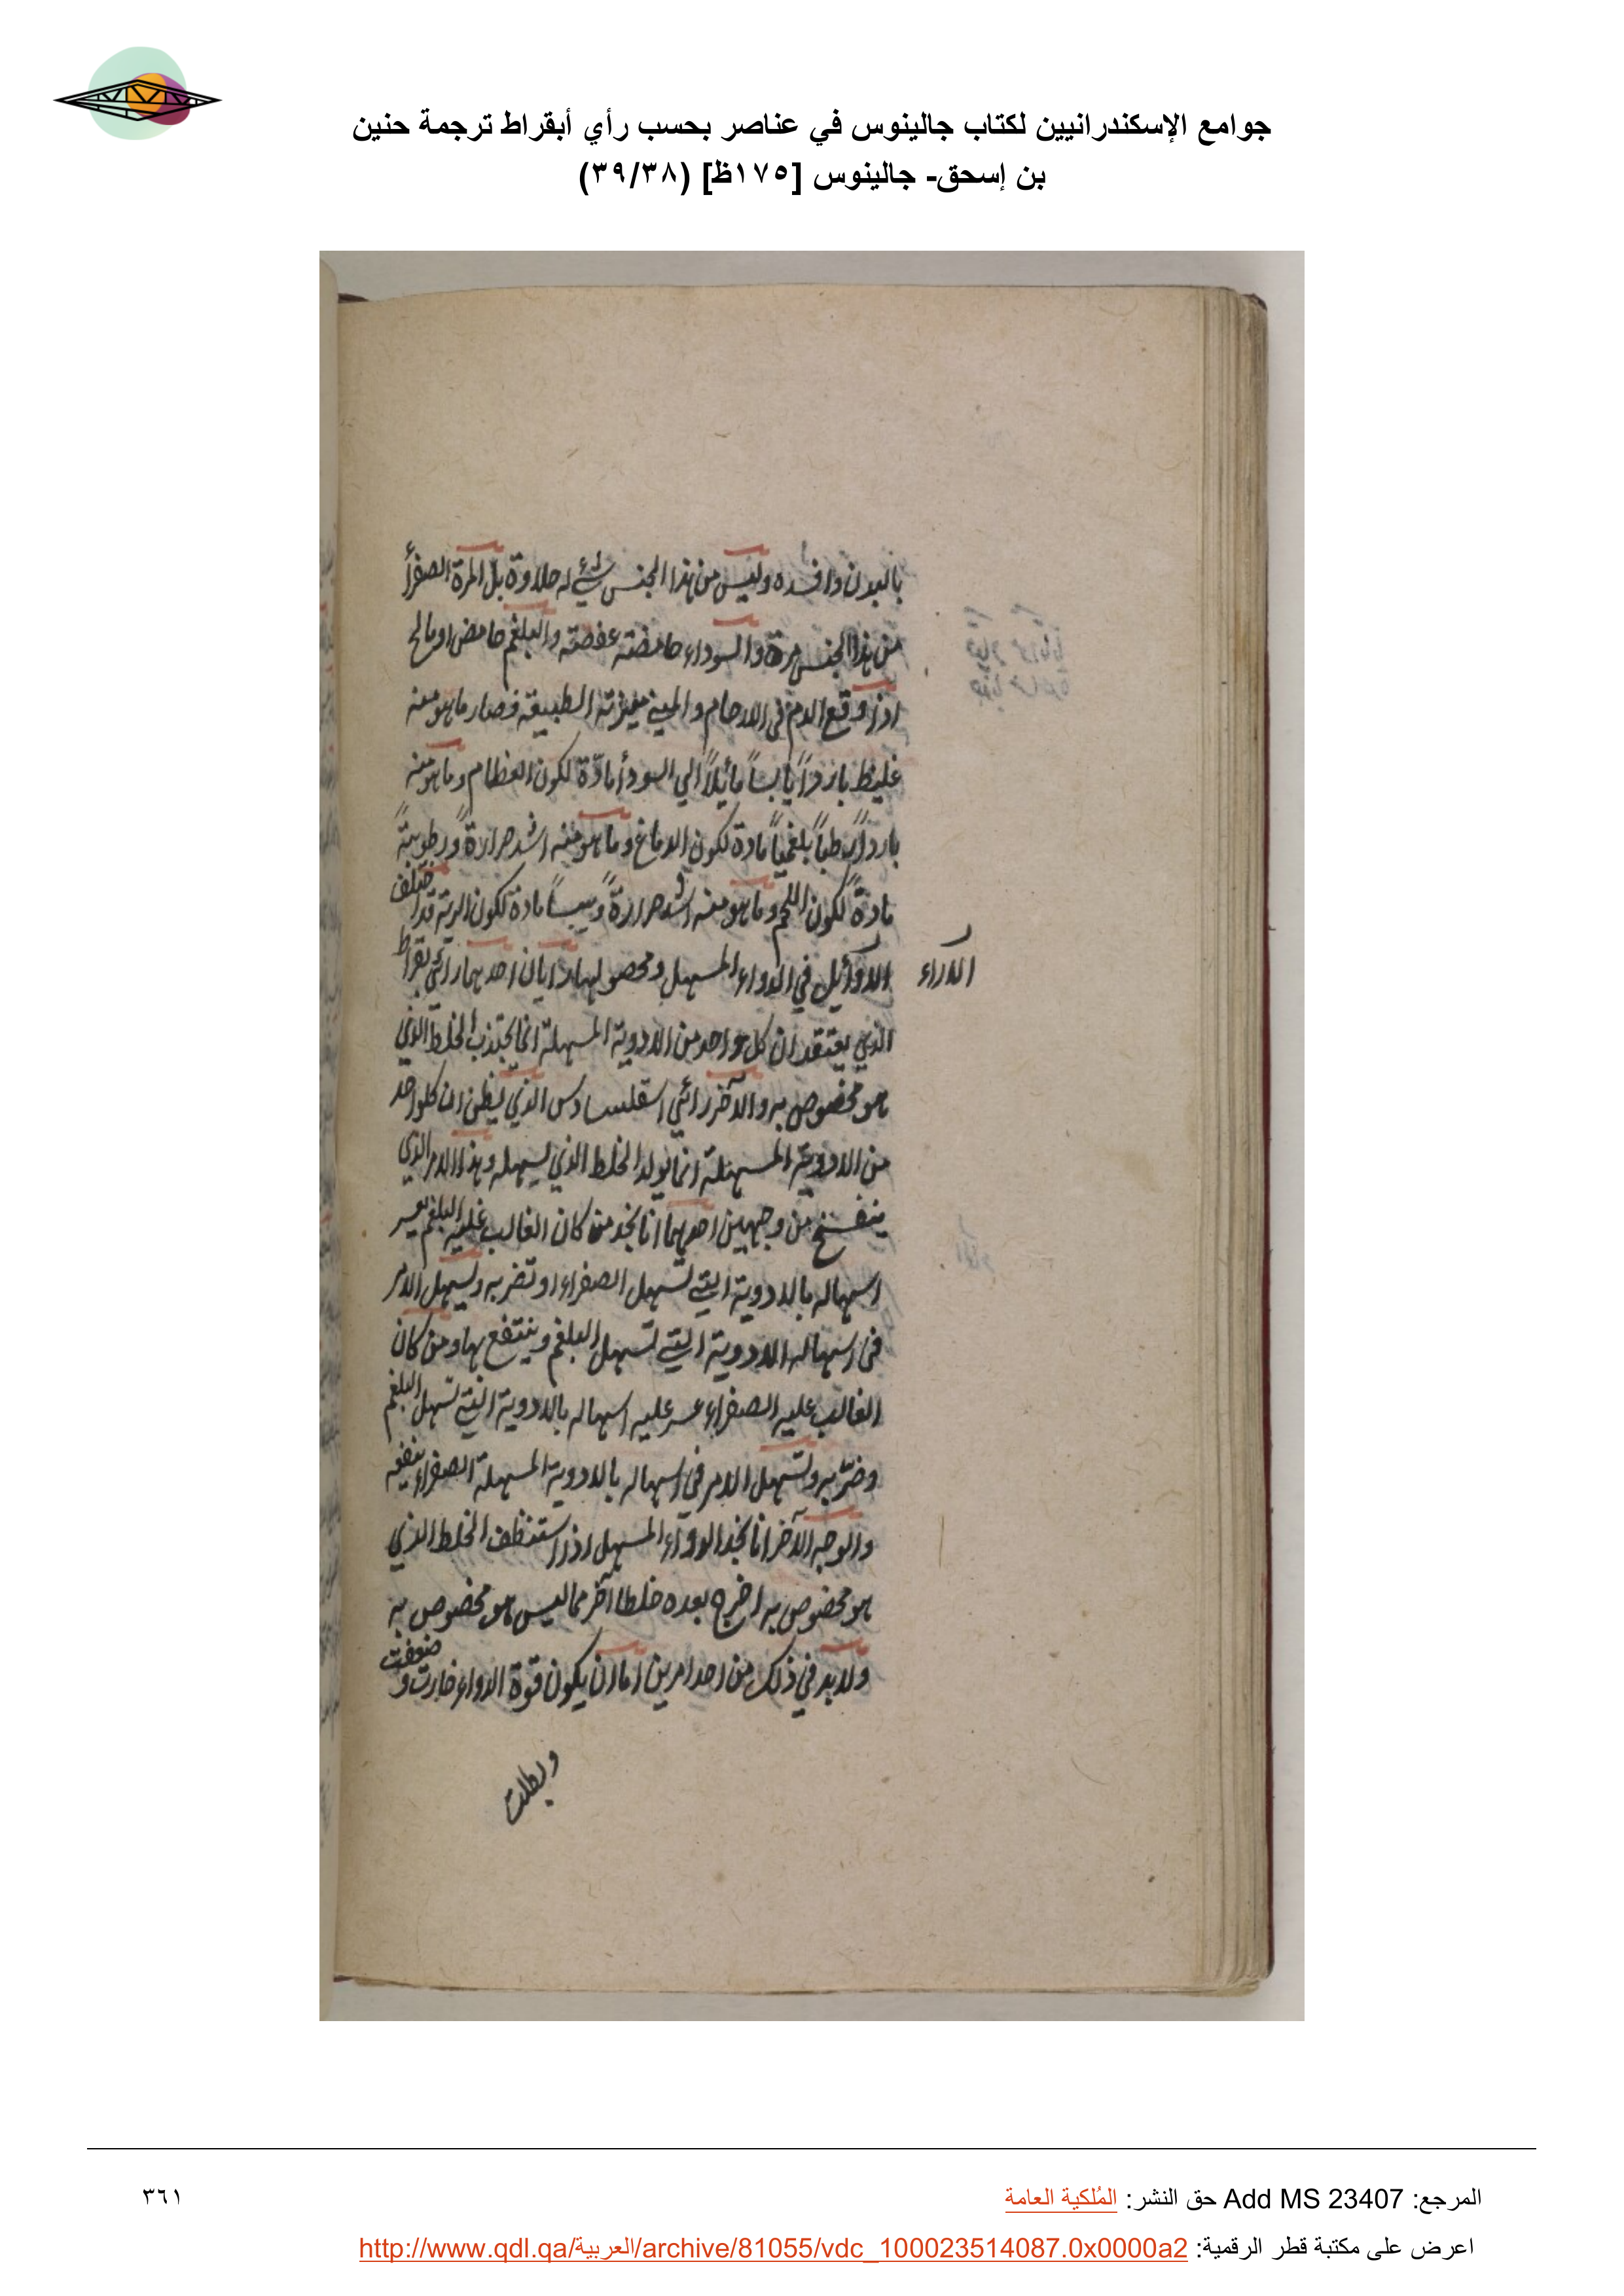 جوامع الإسكندرانيين لكتاب جالينوس في عناصر بحسب رأي أبقراط ترجمة حنين
بن إسحق- جالينوس [١٧٥ظ] (٣٩/٣٨)
بالبدن وافسده وليس من هذا الجنس شيء له حلاوة بل المرة الصفرأ
من هذا الجنس مرة والسوداء حامضة عفصة والبلغم حامض او مالح
اذا وقع الدم في الارحام والمني ميزته الطبيعة فصار ما هو منه
غليظ بارداً يابساً مأيلاً الي السودأ مادّة لكون العظام وما هو منه
بارداً رطباً بلغمياً مادة لكون الدماغ وما هو منه اشد حرارةً ورطوبةً
مادةً لكون اللحم وما هو منه اشد حرارةً ويبساً مادة لكون الرية قد اختلف
الاوأيل في الدواء المسهل ومحصولها رايان احدهما رائي بقراط
الاراء
الذي يعتقد ان كل واحد من الادوية المسهلة انما يجتذب الخلط الذي
هو مخصوص به والآخر رائي اسقلسادس الذي يظن ان كلواحد
من الادوية المسهلة انما يولد الخلط الذي يسهله وهذا الامر الذي
ينفسخ من وجهين احدهما انا نجد من كان الغالب عليه البلغم يعسر
اسهاله بالادوية التي تسهل الصفراء او تضر به ويسهل الامر
في اسهاله الادوية التي تسهل البلغم وينتفع بها ومن كان
الغالب عليه الصفراء عسر عليه اسهاله بالادوية التي تسهل البلغم
وضرّ به وتسهل الامر في اسهاله بالادوية المسهلة الصفراء ينفعه
والوجه الآخر انا نجد الدواء المسهل اذا استنظف الخلط الذي
هو مخصوص به اخرج بعده خلطا آخر مما ليس هو مخصوص به
ولابد في ذلك من احد امرين اما ان يكون قوة الدواء خارت و ضعفت
وبطلت
المرجع: Add MS 23407 حق النشر: المُلكية العامة
٣٦١
اعرض على مكتبة قطر الرقمية: http://www.qdl.qa/العربية/archive/81055/vdc_100023514087.0x0000a2